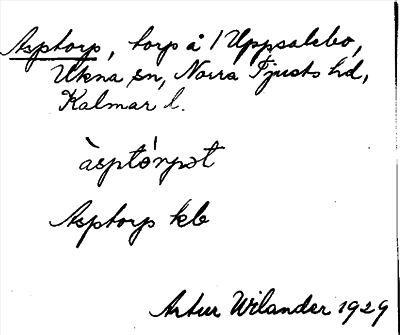 Asptorp, torp å 1 Uppsalebo,
Ukna sn, Norra Tjusts hd,
Kalmar l.
àsptórpət
Asptorp kb
Artur Wilander 1929